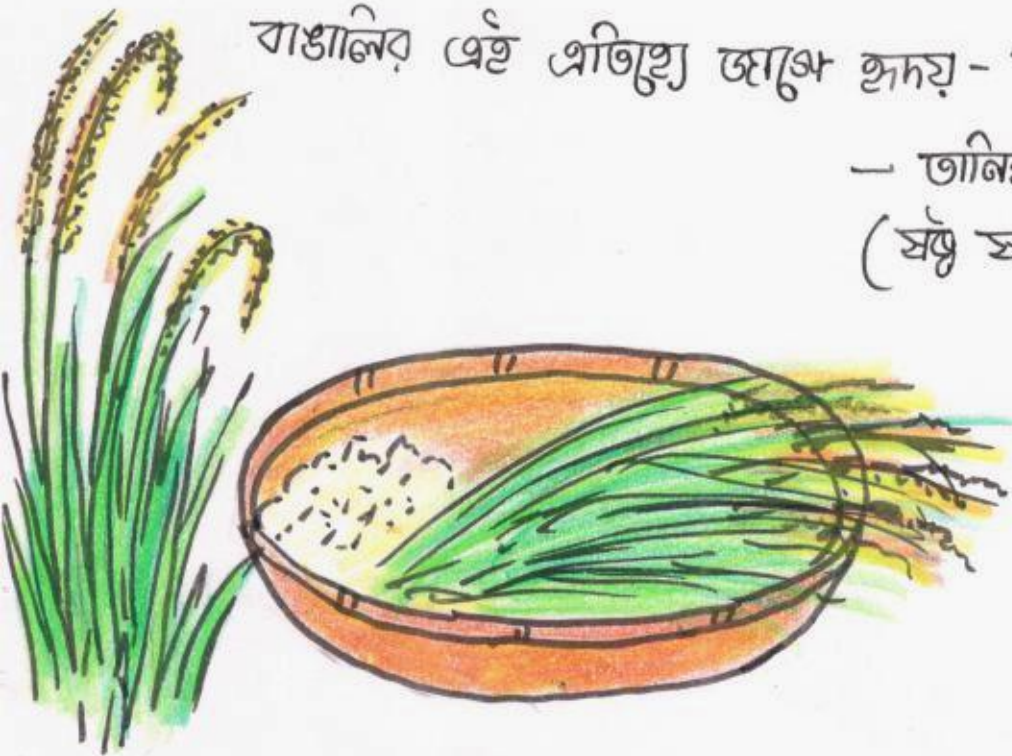 বাঙালির এই ঐতিহ্যে জাগে হৃদয় -
- তানি
(ষষ্ঠ